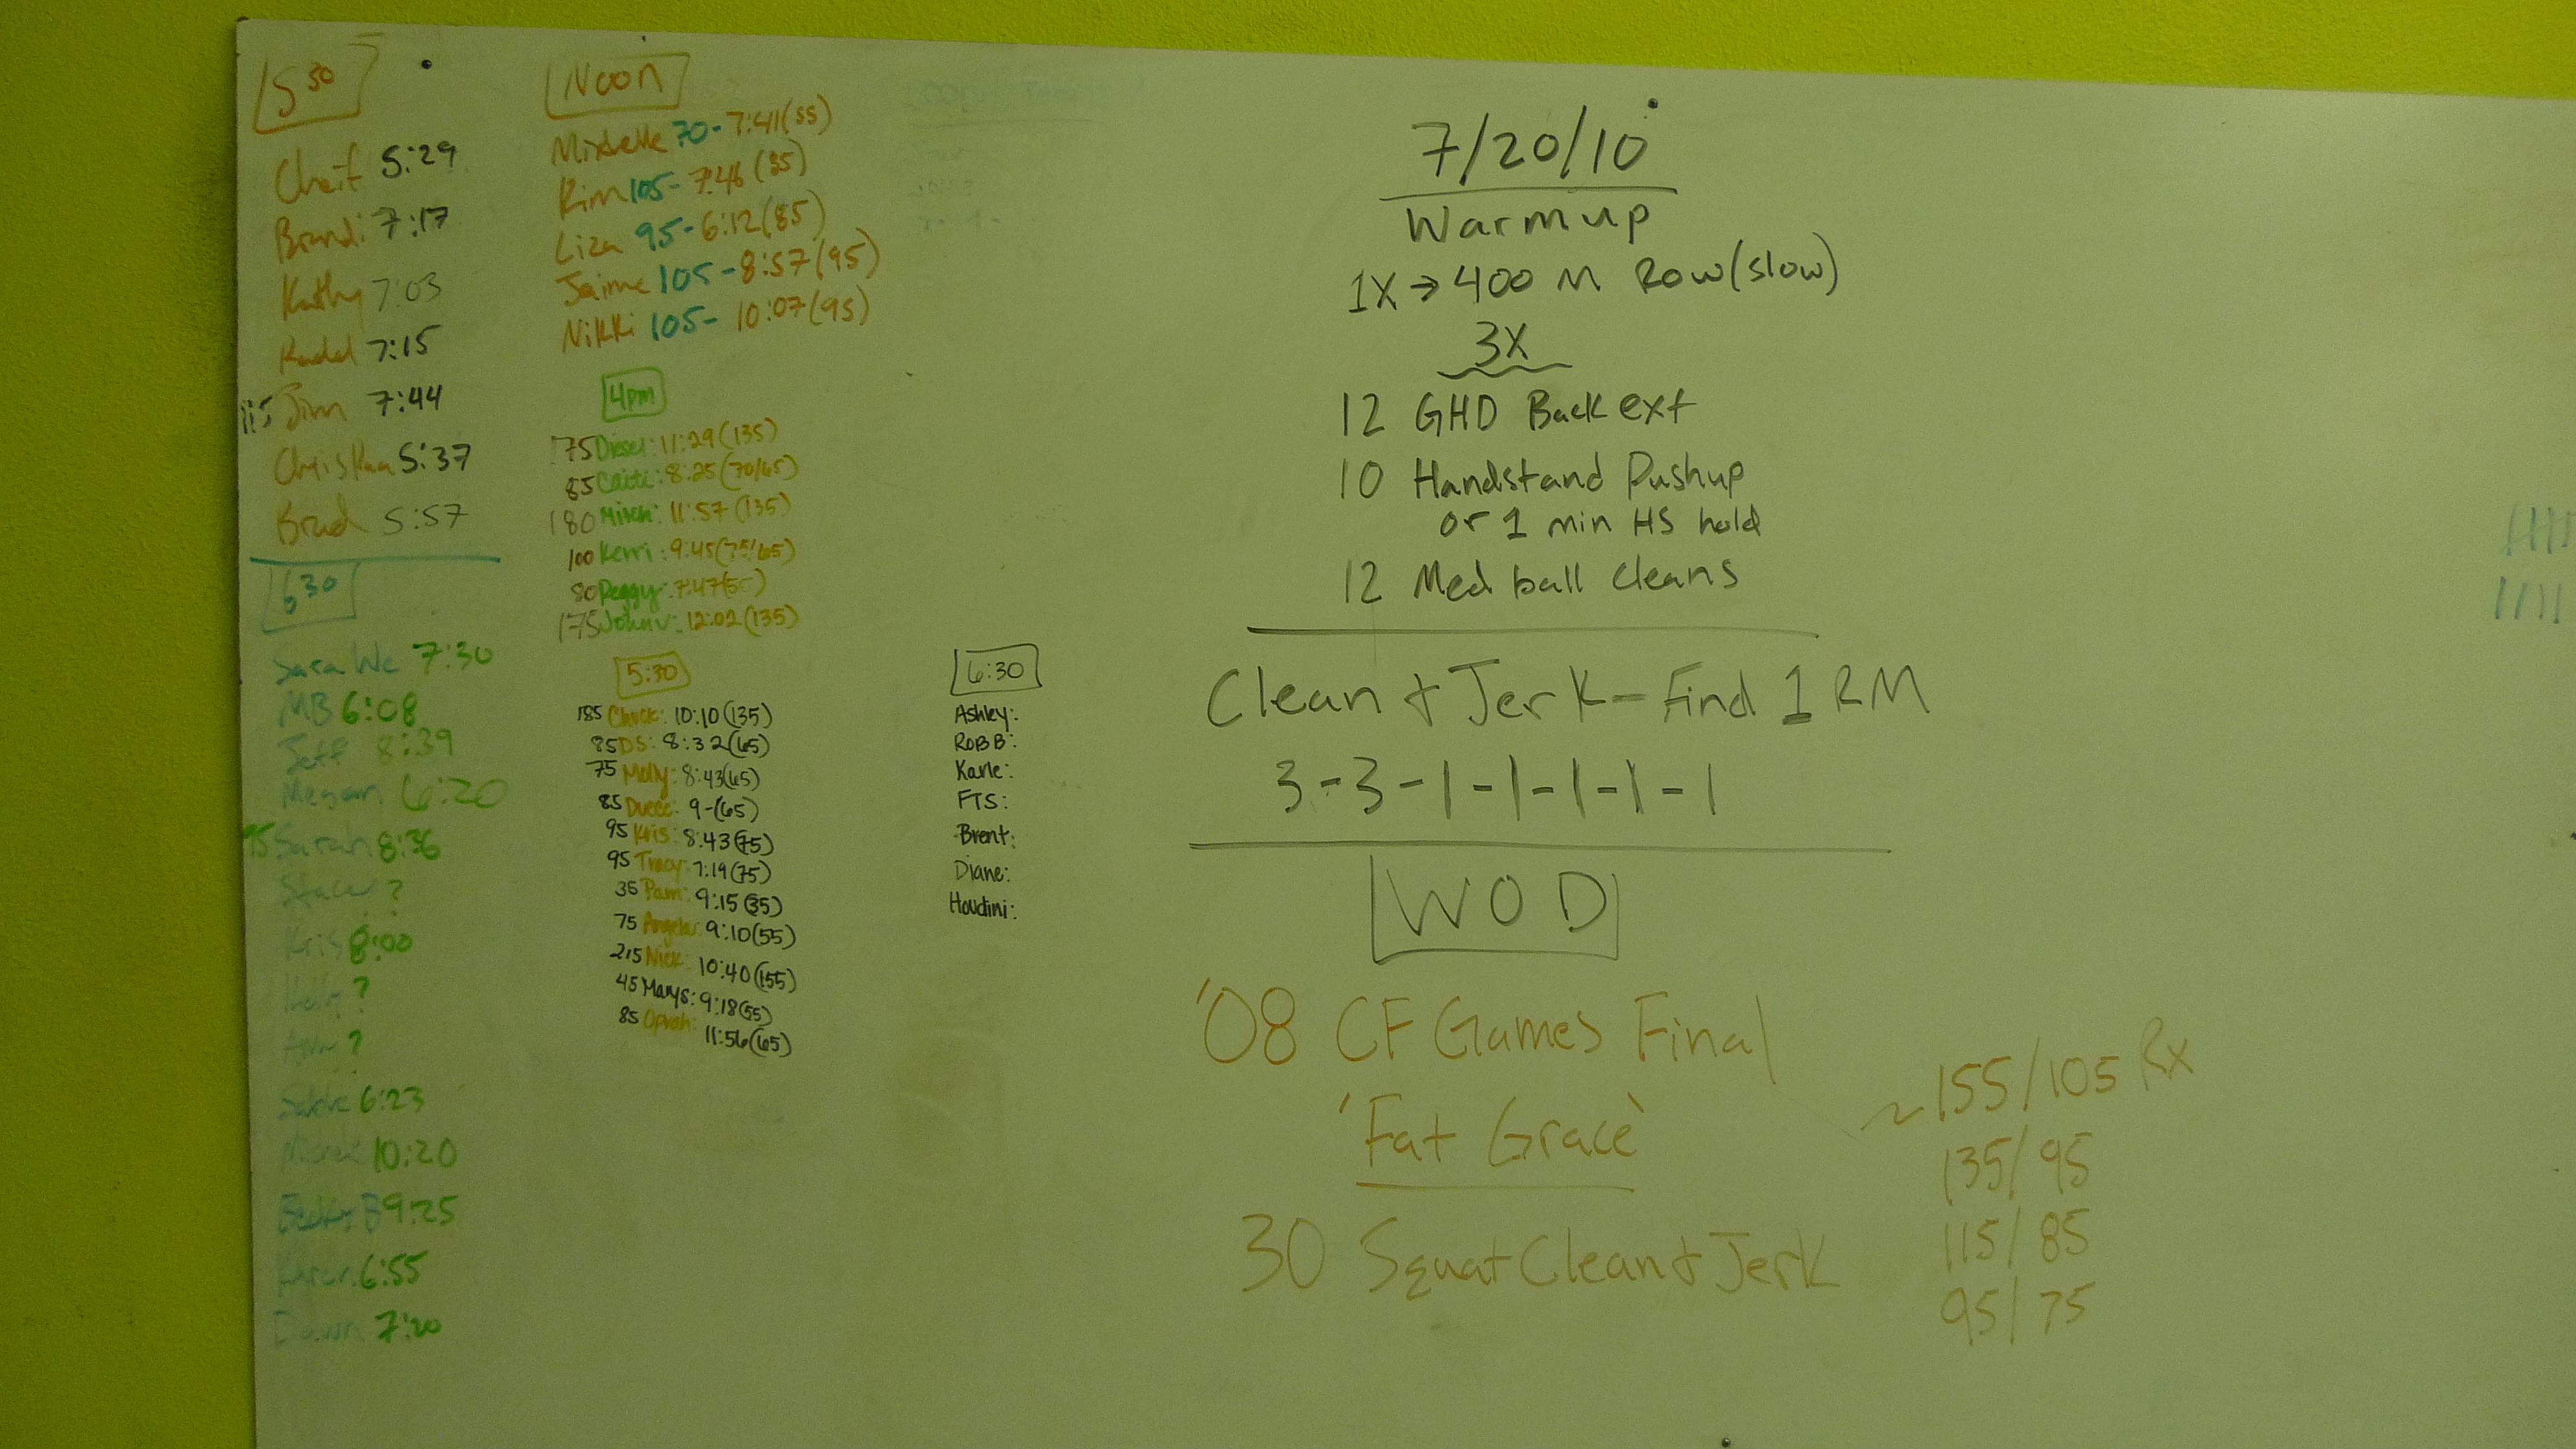 5 30
Cheif 5:29
Brandi 7:17
Kathy 7:03
7:15
115 Jim 7:44
5:37
Brad 5:57
6 30
Sara Wc 7:30
MB 6:08
Jeff 8:39
Megan 6:20
95 Sarah 8:36
?
Kris 8:00
Kelly ?
?
6:23
10:20
Becky B 9:25
Karen 6:55
Dawn 7:20
Noon
70-7:41(55)
Kim 105-7:46(35)
Liza 95-6:12(85)
Jaime 105-8:57(95)
Nikki 105-10:07(95)
4pm
175 Diesel: 11:29(135)
85 Caiti: 8:25(70/65)
180 Mitch: 11:57(135)
100 Kerri: 9:45(75/65)
80 Peggy: 7:47
175 Johnv: 12:02(135)
5:30
185 Chuck: 10:10(135)
85 DS: 8:32(65)
75 Molly: 8:43(65)
85 9-(65)
95 Kris: 8:43(75)
95 Tracy: 7:19(75)
35 Pam: 9:15(35)
75 Angela: 9:10(55)
215 Nick: 10:40(155)
45 Marys: 9:18(55)
85 Oprah: 11:56(65)
6:30
Ashley:
ROB B:
Karle:
FTS:
Brent:
Diane:
Houdini:
7/20/10
Warmup
1X→400 M Row(slow)
3X
12 GHD Back ext
10 Handstand Pushup
or 1 min HS hold
12 Med ball cleans
Clean + Jerk - Find 1 RM
3-3-1-1-1-1-1
WOD
'08 CF Games Final
'Fat Grace'
30 Squat Clean + Jerk
~155/105 Rx
135/95
115/85
95/75